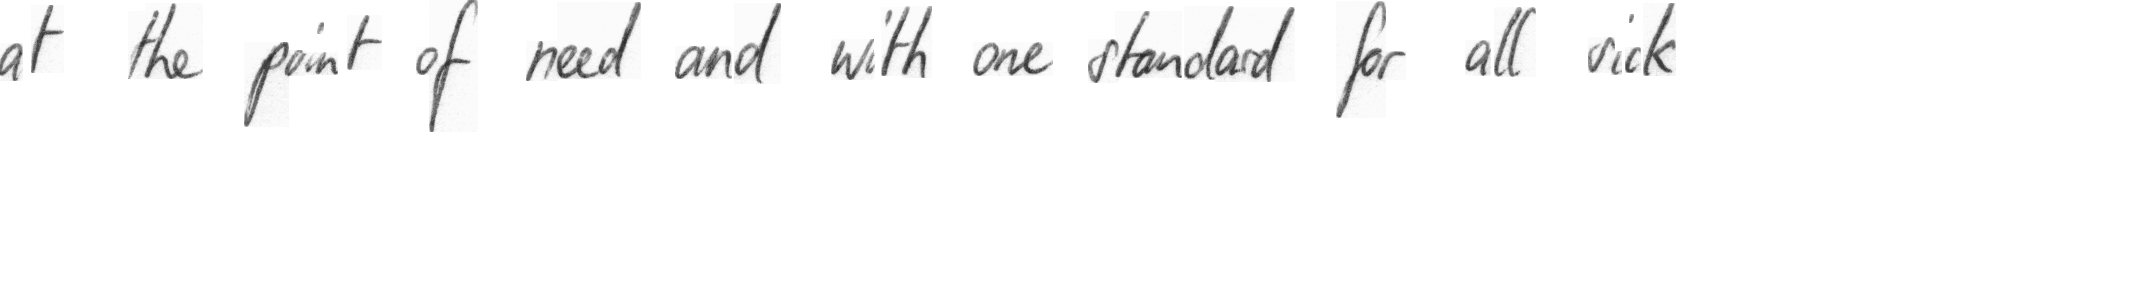 at the point of need and with one standard for all sick